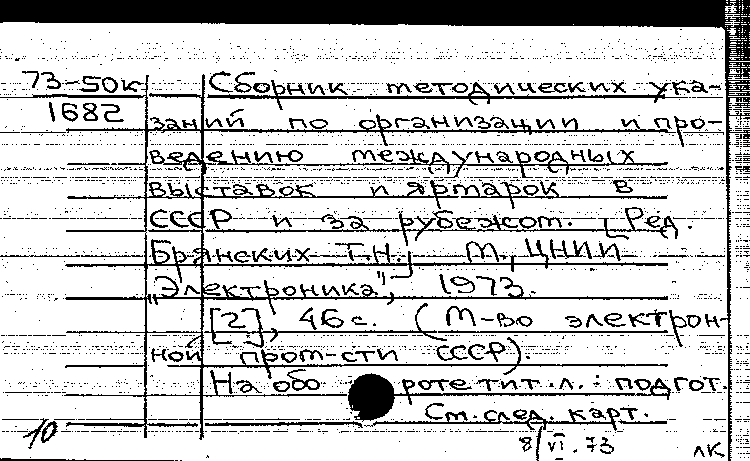 73-50к Сборник методических ука-
1682 заний по организации и про-
ведению международных
выставок и ярмарок в
СССР и за рубежом. [Ред.
Брянских Т.Н.] М., ЦНИИ
„Электроника", 1973.
[2], 46 с. (М-во электрон-
ной пром-сти СССР).
На обороте тит.л.: подгот.
См. след. карт.
10 8/VI.73 ЛК